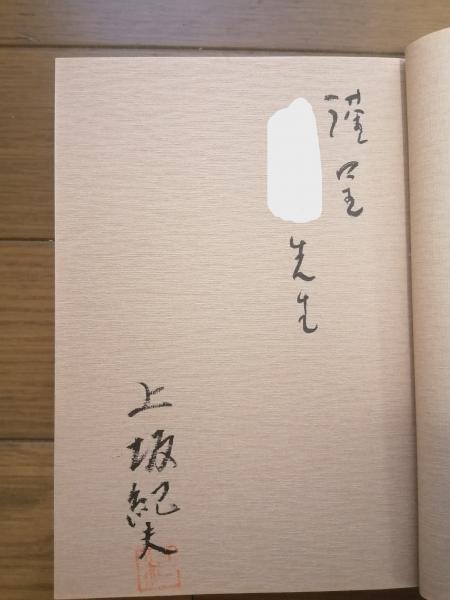 謹呈
先生
上坂紀夫